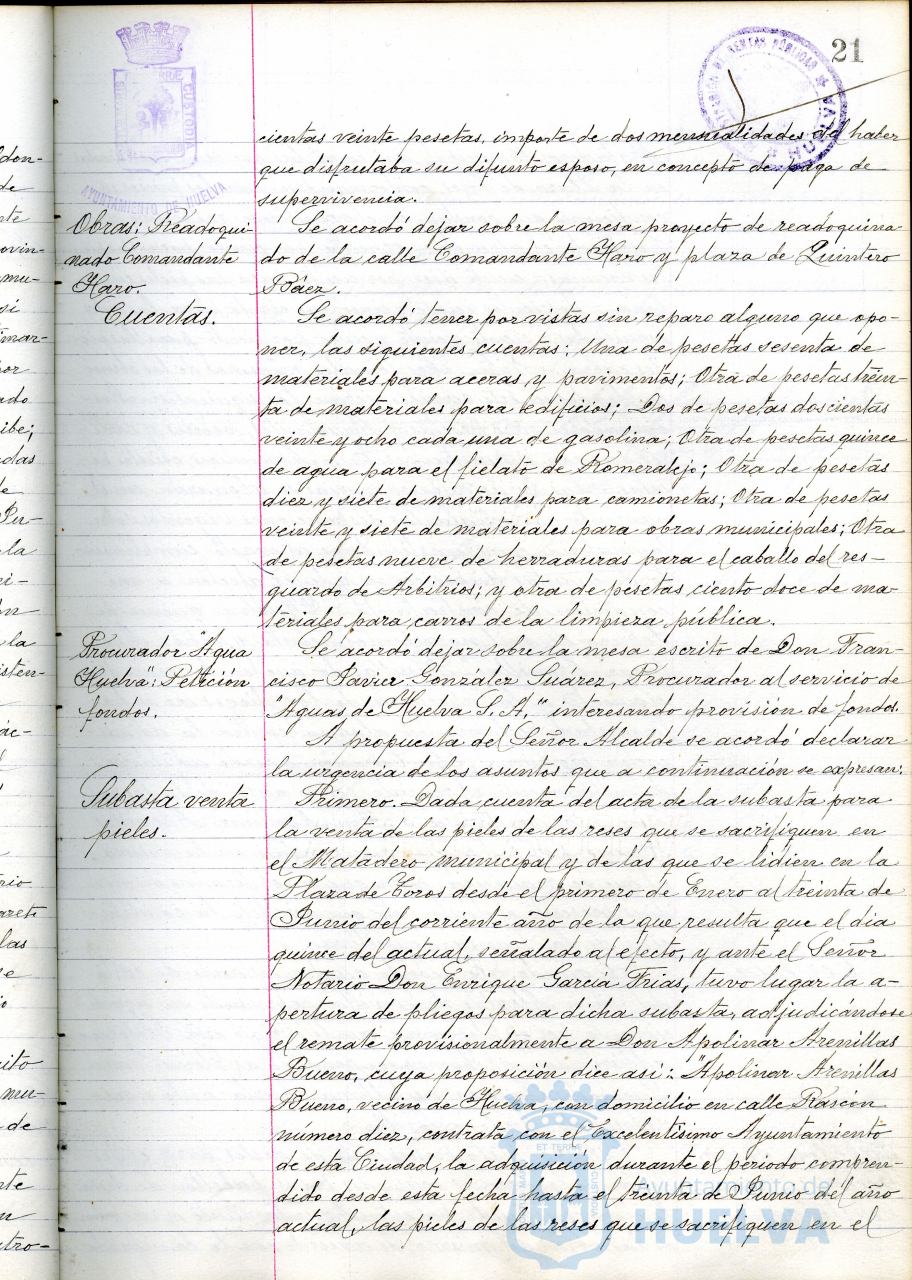 21
AYUNTAMIENTO DE HUELVA
HUELVA
cientas veinte pesetas, importe de dos mensualidades del haber
que disfrutaba su difunto esposo, en concepto de paga de
supervivencia.
Obras: Readoqui-
nado Comandante
Haro.
Se acordó dejar sobre la mesa proyecto de readoquina
do de la calle Comandante Haro y plaza de Quintero
Báez.
Cuentas.
Se acordó tener por vistas sin reparo alguno que opo-
ner, las siguientes cuentas: Una de pesetas sesenta de
materiales para aceras y pavimentos; Otra de pesetas trein-
ta de materiales para edificios; Dos de pesetas doscientas
veinte y ocho cada una de gasolina; Otra de pesetas quince
de agua para el fielato de Romeralejo; Otra de pesetas
diez y siete de materiales para camionetas; Otra de pesetas
veinte y siete de materiales para obras municipales; Otra
de pesetas nueve de herraduras para el caballo del res-
guardo de Arbitrios; y otra de pesetas ciento doce de ma-
teriales para carros de la limpieza pública.
Procurador "Agua
Huelva": Petición
fondos.
Se acordó dejar sobre la mesa escrito de Don Fran-
cisco Javier González Suárez, Procurador al servicio de
"Aguas de Huelva S. A." interesando provision de fondos.
A propuesta del Señor Alcalde se acordó declarar
la urgencia de los asuntos que a continuación se expresan:
Subasta venta
pieles.
Primero. Dada cuenta del acta de la subasta para
la venta de las pieles de las reses que se sacrifiquen en
el Matadero municipal y de las que se lidien en la
Plaza de Toros desde el primero de Enero al treinta de
Junio del corriente año de la que resulta que el dia
quince del actual, señalado al efecto, y ante el Señor
Notario Don Enrique García Frias, tuvo lugar la a-
pertura de pliegos para dicha subasta, adjudicándose
el remate provisionalmente a Don Apolinar Arenillas
Bueno, cuya proposición dice asi: "Apolinar Arenillas
Bueno, vecino de Huelva, con domicilio en calle Rascón
número diez, contrata con el Excelentísimo Ayuntamiento
de esta Ciudad, la adquisición durante el periodo compren-
dido desde esta fecha hasta el treinta de Junio del año
actual, las pieles de las reses que se sacrifiquen en el
Ayuntamiento de
HUELVA